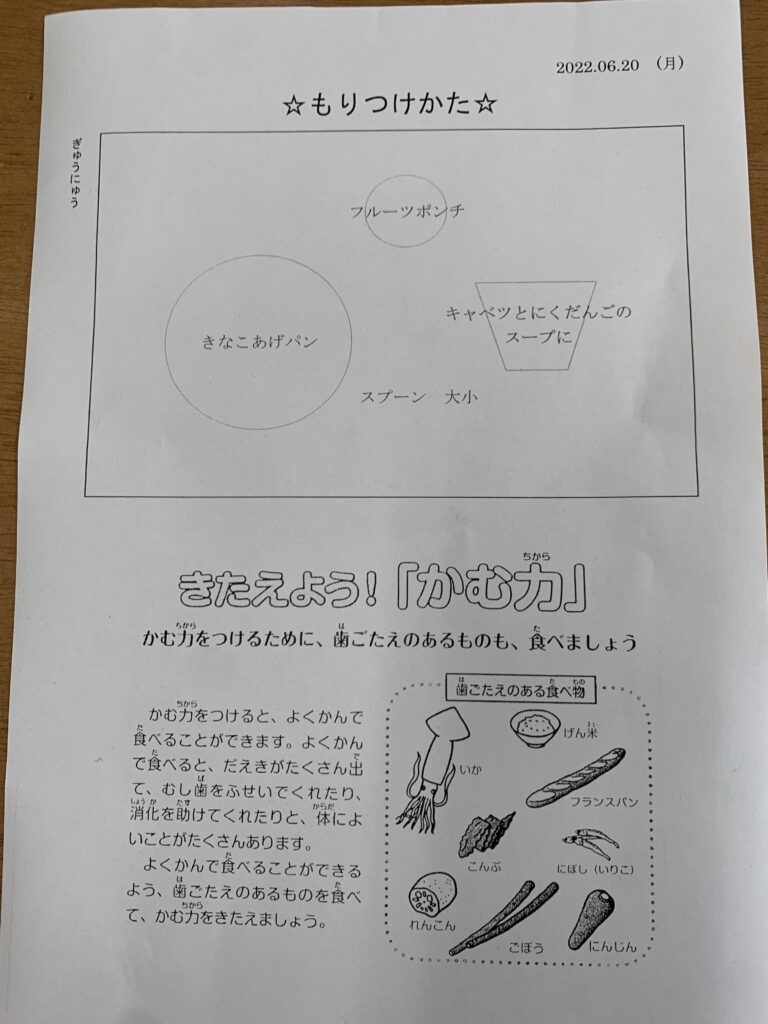 2022.06.20 (月)
☆もりつけかた☆
ぎゅうにゅう
フルーツポンチ
きなこあげパン
キャベツとにくだんごの
スープに
スプーン 大小
きたえよう!「かむ力」
ちから
かむ力をつけるために、歯ごたえのあるものも、食べましょう
ちから は た
かむ力をつけると、よくかんで
ちから
食べることができます。よくかん
た
で食べると、だえきがたくさん出
た で
て、むし歯をふせいでくれたり、
ば
消化を助けてくれたりと、体によ
しょうか たす からだ
いことがたくさんあります。
よくかんで食べることができる
た
よう、歯ごたえのあるものを食べ
は た
て、かむ力をきたえましょう。
ちから
歯ごたえのある食べ物
は た もの
いか
げん米
まい
フランスパン
こんぶ
にぼし(いりこ)
れんこん
ごぼう
にんじん